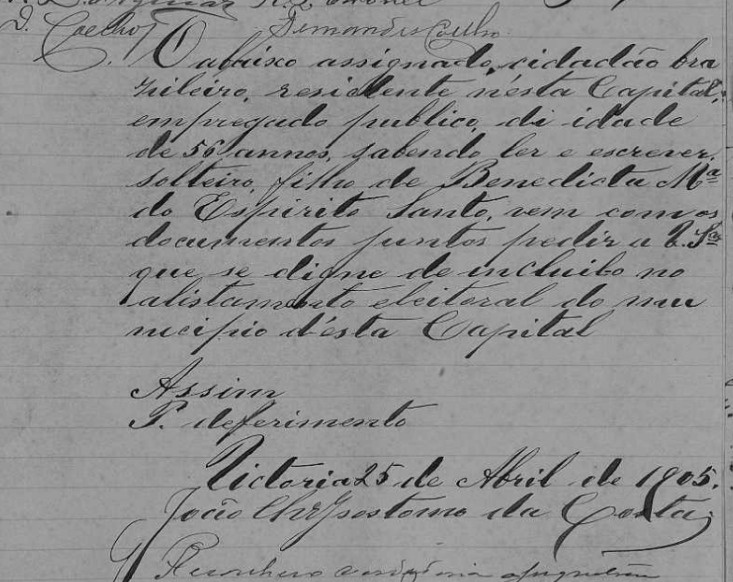 D. Coelho Fernandes Coelho
O abaixo assignado, cidadão bra
zileiro, residente n'esta Capital,
empregado publico, di idade
de 56 annos, sabendo ler e escrever,
solteiro, filho de Benedicta Mª
do Espirito Santo, vem com os
documentos juntos pedir a V. Sª
que se digne de incluilo no
alistamento eleitoral do mu
nicipio d'esta Capital
Assim
P. deferimento
Victoria 25 de Abril de 1905.
João Chrysostomo da Costa
Reconheço verdadeira